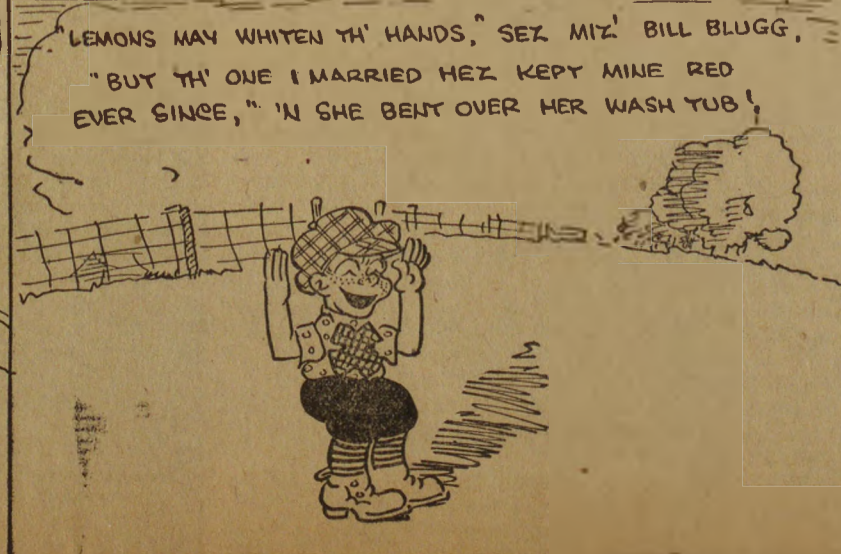 "LEMONS MAY WHITEN TH' HANDS," SEZ MIZ' BILL BLUGG,
"BUT TH' ONE I MARRIED HEZ KEPT MINE RED
EVER SINCE," 'N SHE BENT OVER HER WASH TUB!